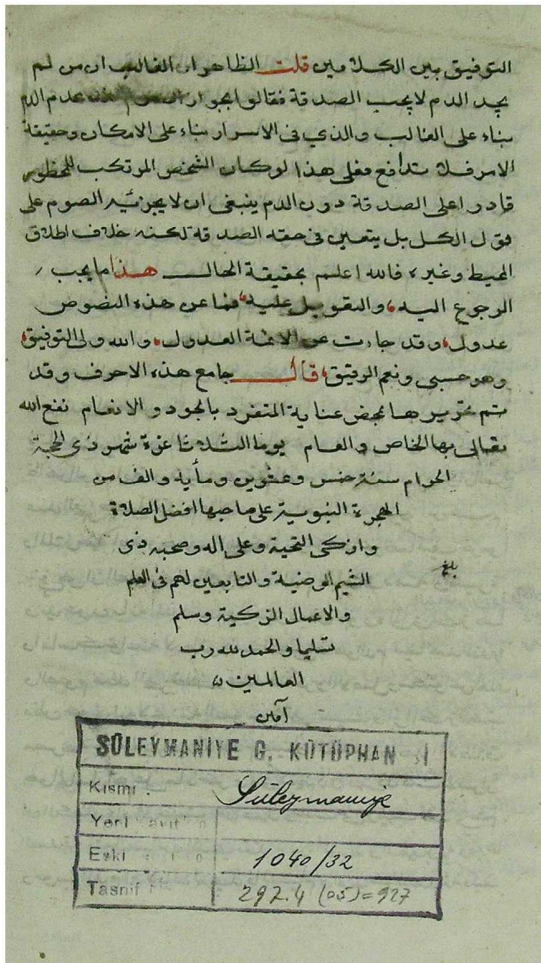 التوفيق بين الكلامين قلت الظاهر ان الغالب ان من لم
يجد الدم لا يجب الصدقة فقالوا بجواز الصوم عدم الدم
بناء على الغالب والذي في الاسرار بناء على الامكان وحقيقة
الامر فلا تدافع فعلى هذا لو كان الشخص المرتكب للمحظور
قادرا على الصدقة دون الدم ينبغي ان لا يجزئه الصوم على
قول الكل بل يتعين في حقه الصدقة لكنه خلاف اطلاق
المحيط وغيره فالله اعلم بحقيقة الحال هذا ما يجب
الرجوع اليه والتعويل عليه فما عن هذه النصوص
عدول وقد جاءت عن الائمة العدول والله ولي التوفيق
وهو حسبي ونعم الرفيق قال جامع هذه الاحرف وقد
تم تحريرها بمحض عناية المتفرد بالجود والانعام نفع الله
تعالى بها الخاص والعام يوم الثلاثا غرة شهر ذي الحجة
الحرام سنة خمس وعشرين ومأية والف من
الهجرة النبوية على صاحبها افضل الصلاة
وازكى التحية وعلى اله وصحبه ذي
الشيم المرضية والتابعين لهم في العلم
بلغ
والاعمال الزكية وسلم
تسليما والحمد لله رب
العالمين
آمين
SÜLEYMANİYE G. KÜTÜPHAN İ
Kısmı : Süleymaniye
Yeni
Eski 1040/32
Tasnif 297.4 (05)=927